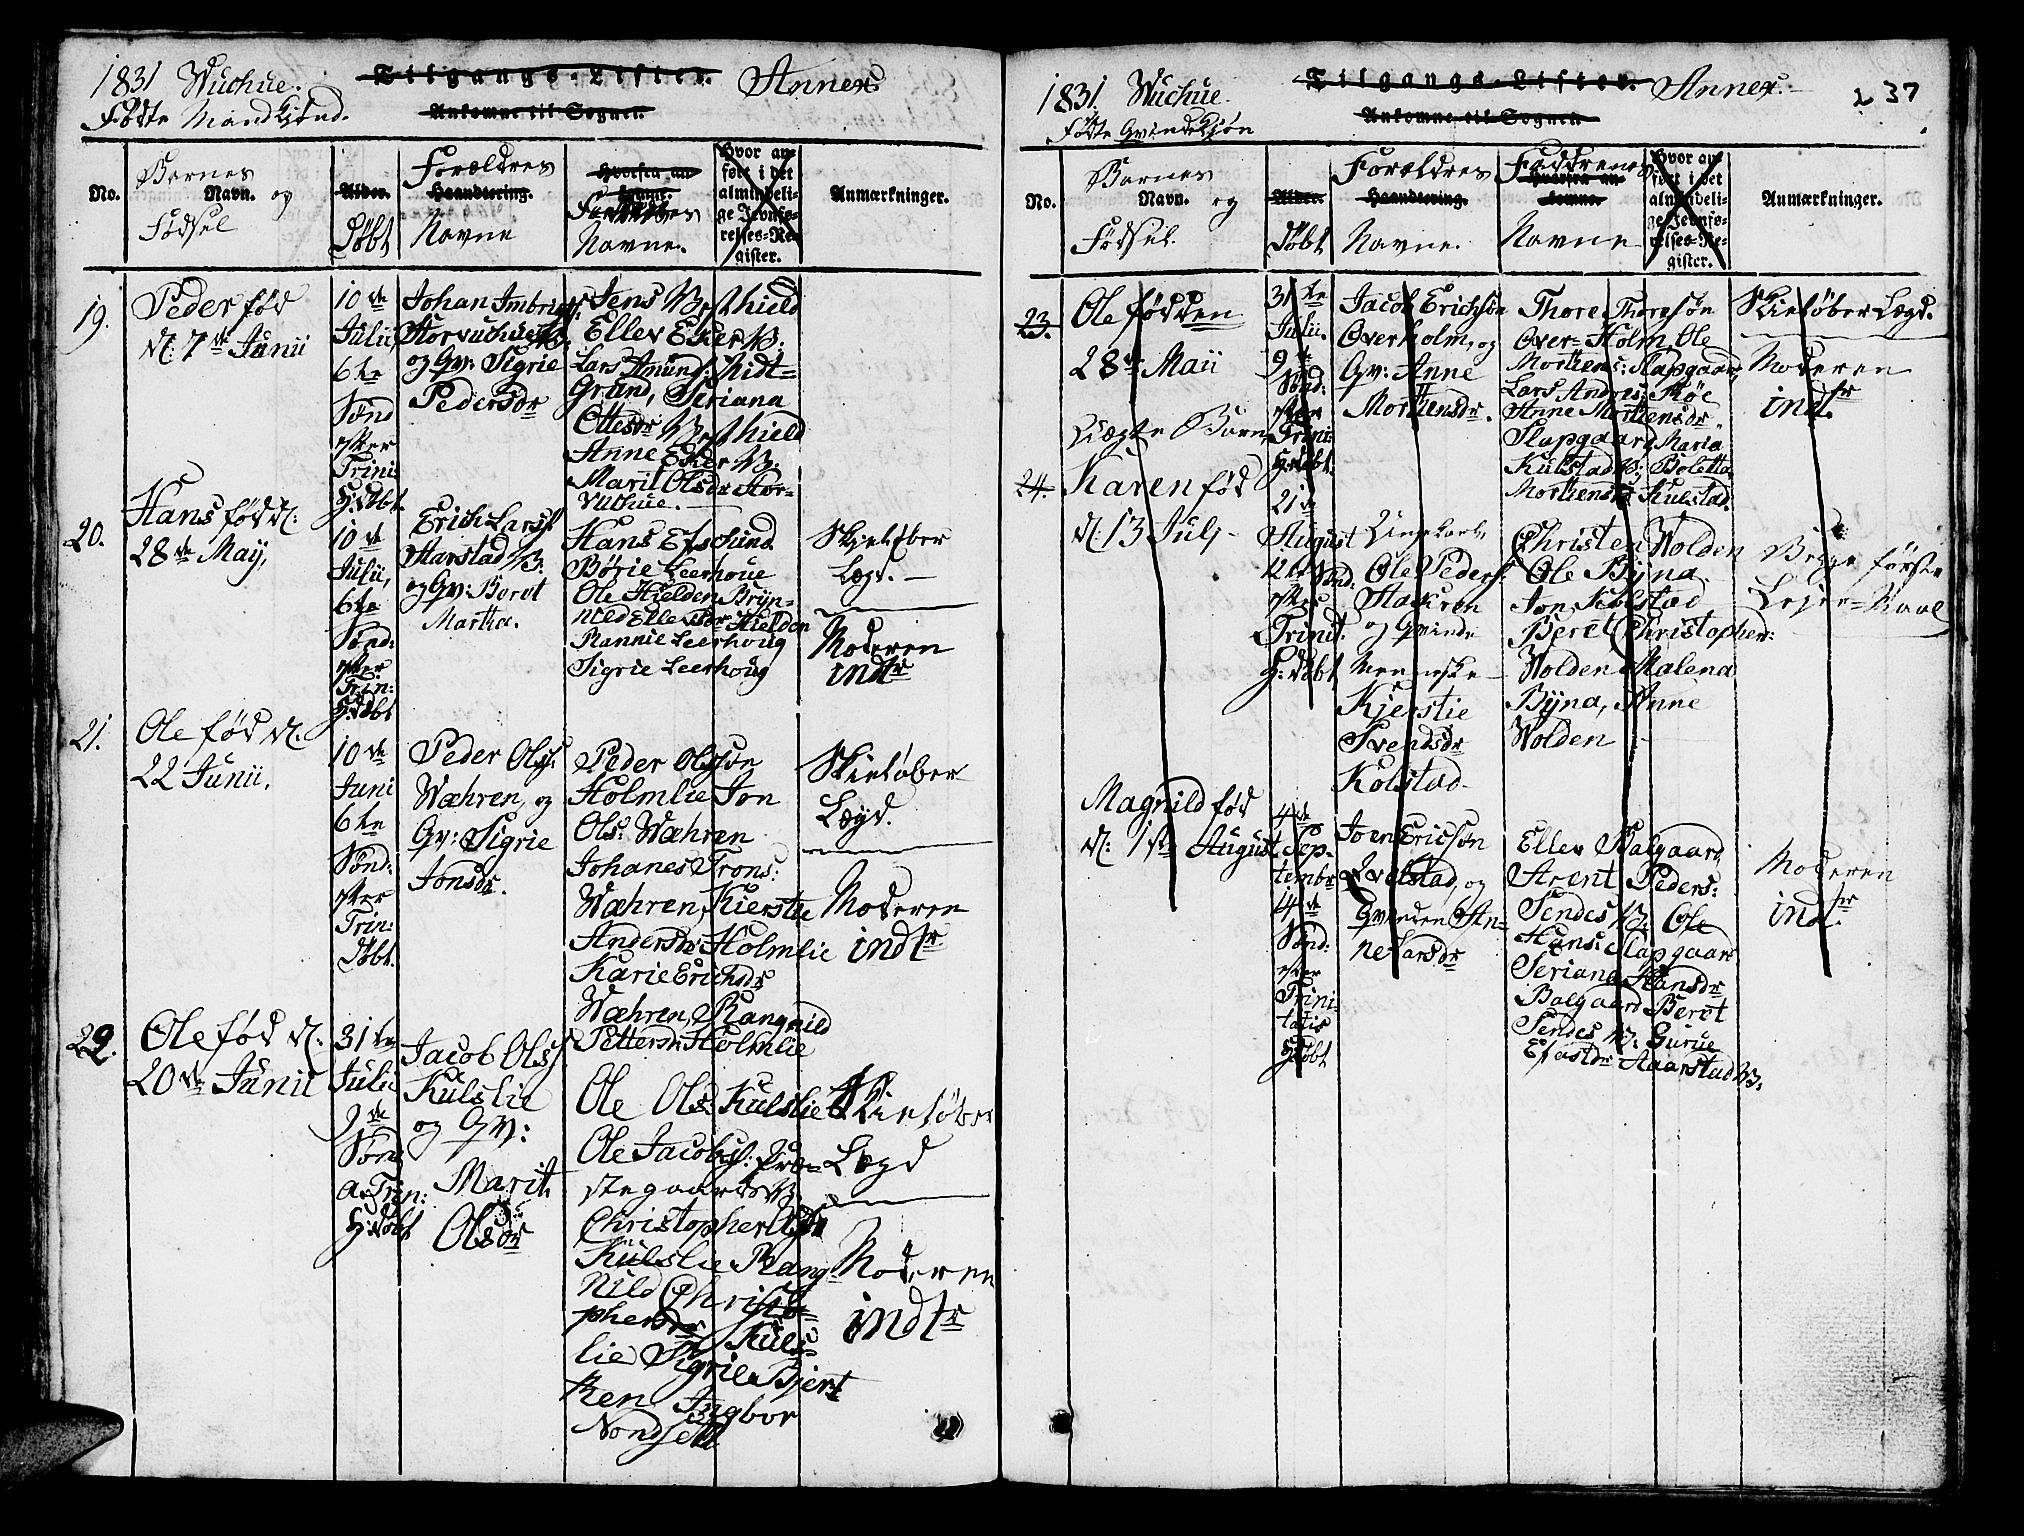 1831 Wuchue. Tilgangs-Lister. Annex
Fødte Mandkjønd. Ankomne til Sognet.
No.
Børnes
Navn. og
Fødsel
Alder.
Døbt
Forældres
Haandtering.
Navne
Hvorfra an-
komne.
Faddernes
Navne.
Hvor an-
ført i det
almindeli-
ge Jevnfø-
relses-Re-
gister.
Anmærkninger.
19.
Peder fød
d: 7de Junii
10de
Julii,
6te
Sønd
efter
Trini
H: Døbt
Johan Imbrigs:
Storvuchue
og Gv: Sigrie
Pedersdr
Jens Westhield
Ellev Eker
Lars Amund: Midt-
Grand, Seriana
Ottesdr Westhield
Anne Eker
Marit Olsdr Stor-
Vuchue.
20.
Hans fød d:
28de May,
10de
Julii,
6te
Sønd:
efter
Trin:
H: Døbt
Erich Lars:
Aarstad
og Gv: Beret
Martha.
Hans Efslund
Børie Leerhoue
Ole Hielden Bryn-
nild Ellevsdr Hielden
Rannie Leerhoug
Sigrie Leerhoug
Skieløber
Lægd.
Moderen
indtr
21.
Ole fød d:
22 Junii.
10de
Juni
6te
Sønd:
efter
Trin:
Døbt.
Peder Ols:
Wæhren, og
Gv: Sigrie
Jonsdr.
Peder Olsøn
Holmlie Jon
Ols: Wæhren
Johanes Trons:
Wæhren, Kierstie
Andersdr Holmlie
Karie Erichsdr
Wæhren, Rangnild
Pettersdr Holmlie
Skieløber
Lægd.
Moderen
indtr
22.
Ole fød d:
20de Junii
31te
Julii
9de
Sønd
a: Trin:
H: Døbt
Jacob Ols:
Kulslie
og Gv:
Marit
Olsdr
Ole Ols: Kulslie
Ole Jacobs: Præ-
stegaards
Christopher Ols:
Kulslie Rang-
nild Christo-
phersdr Kuls-
lie Sigrie Bjert
ken Ingbor
Nondsett
Skieløber
Lægd
Moderen
indtr
1831. Wuchue. Tilgangs-Lister. Annex. 237
Fødte Qvindekjøn Ankomne til Sognet.
No.
Børnes
Navn. og
Fødsel.
Alder.
Døbt
Forældres
Haandtering.
Navne.
Faddernes
Hvorfra an-
komne.
Navne
Hvor an-
ført i det
almindeli-
ge Jevnfø-
relses-Re-
gister.
Anmærkninger.
23.
Ole fød den
28de Maii
31te
Julii.
9de
Sønd:
efter
Trini:
H: Døbt.
Jacob Erichsøn
Overholm, og
Gv: Anne
Mortensdr.
Thore Thoresøn
Over-Holm, Ole
Mortens: Slapgaard,
Lars Andres: Moe
Anne Mortensdr
Slapgaard, Maria
Kulstad Boletta
Mortensdr Kulstad.
Skieløber Lægd.
Moderen
indtr.
Uægte Barn
24.
Karen fød
d: 13 Julj
21de
August
12te Sønd:
efter
Trinit.
H: Døbt
Ungekarl
Ole Peders:
Stackren
og Qvinde
Menneske
Kierstie
Svendsdr
Kolstad
Christen Wolden
Ole Byna
Jon Kolstad
Beret Christopher:
Wolden Malena
Byna, Anne
Wolden
Begge første
Lejer-Maal
Magnild fød
d: 1ste August
4de
Sep-
tembr
14de
Sønd:
efter
Trini-
tatis
H: Døbt
Joen Ericsøn
Qvelstad, og
Qvinden An-
ne Larsdr
Ellev Balgaard,
Arent Peders:
Sendes Ole
Hans: Slapgaard
Seriana Hansdr
Balgaard Beret
Sendes Gurue
Efastdr Aaarstad
Moderen
indtr.